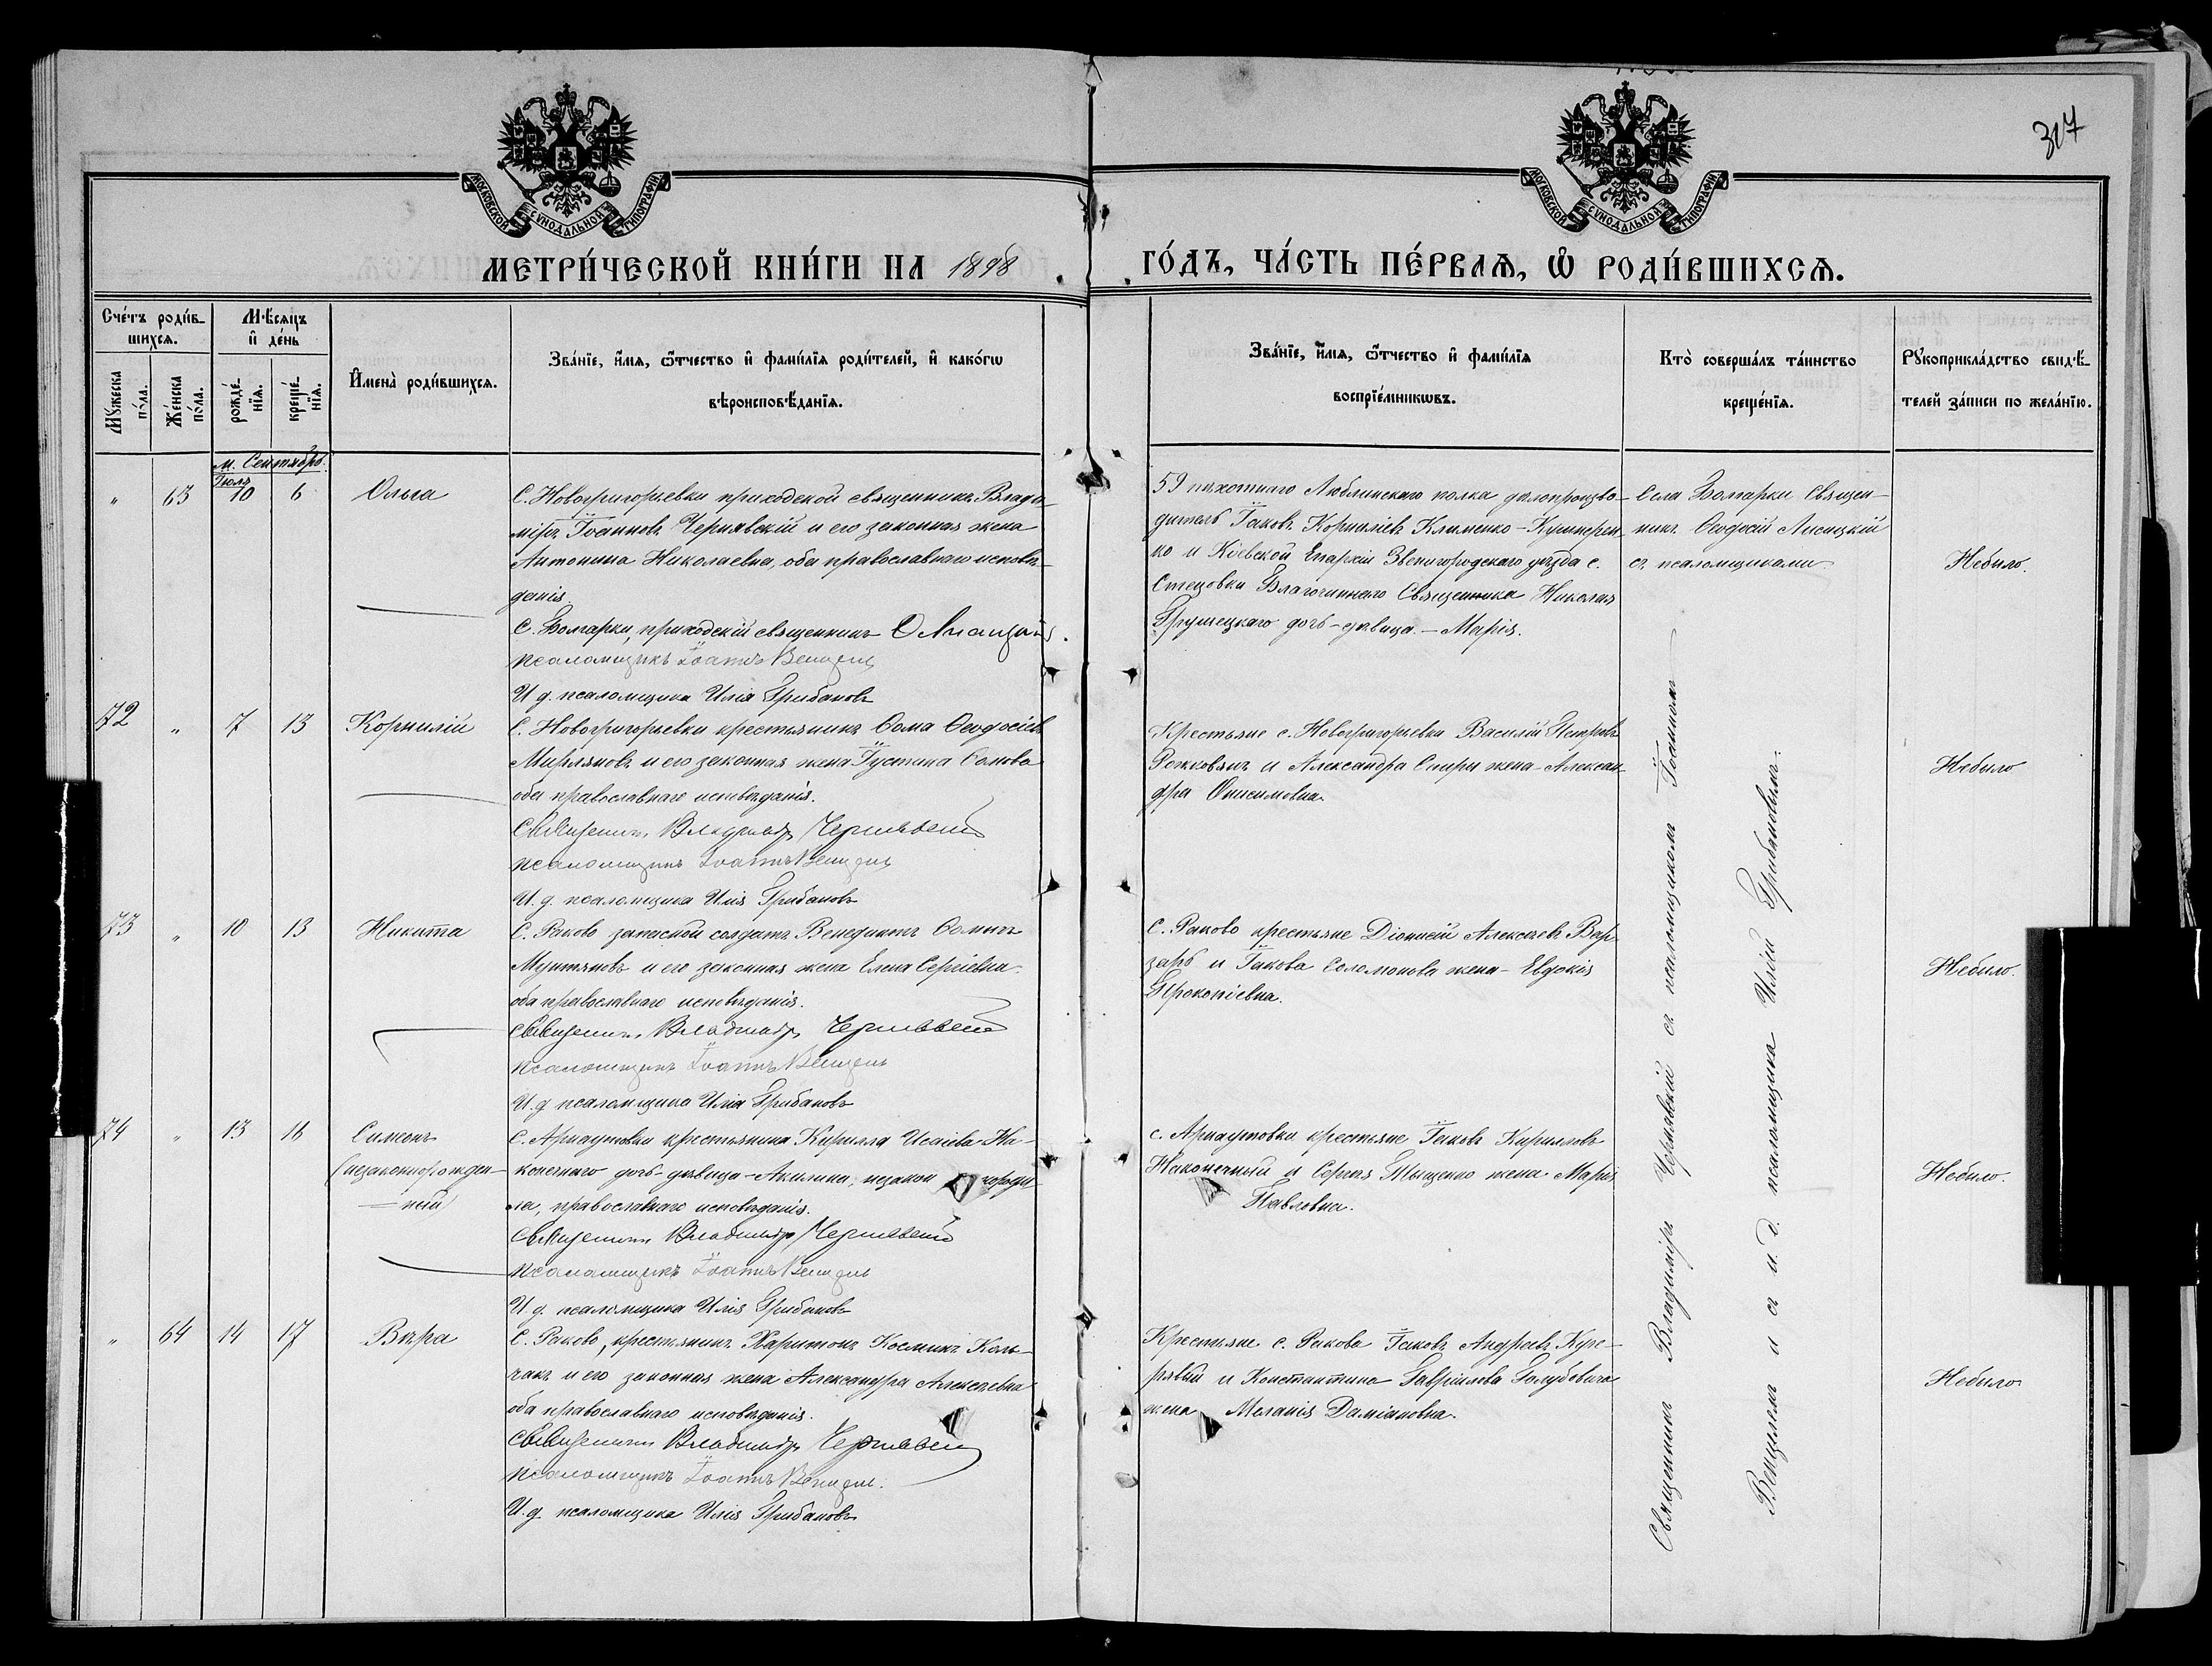 317
МОСКОВСКОЙ СУНОДАЛЬНОЙ ТИПОГРАФІИ
МОСКОВСКОЙ СУНОДАЛЬНОЙ ТИПОГРАФІИ
МЕТРИ́ЧЕСКОЙ КНИ́ГИ НА 1898
ГО́ДЪ, ЧА́СТЬ ПЕ́РВАѦ, Ѡ҆ РОДИ́ВШИХСѦ.
Сче́тъ роди́в-
шихсѧ.
Мꙋ́жеска по́ла.
Же́нска по́ла.
Мѣ́сѧцъ
и҆ де́нь
рожде́-
нїѧ.
креще́-
нїѧ.
И҆мена̀ роди́вшихсѧ.
Зва́нїе, и҆́мѧ, ѻ҆́тчество и҆ фами́лїѧ роди́телей, и҆ како́гѡ
вѣроисповѣ́данїѧ.
Зва́нїе, и҆́мѧ, ѻ҆́тчество и҆ фами́лїѧ
воспрїе́мникѡвъ.
Кто̀ соверша́лъ та́инство
креще́нїѧ.
Рꙋкоприкла́дство свидѣ́-
телей за́писи по жела́нїю.
м. Сентябрь.
Іюль
" 63 10 6 Ольга
С. Новогригорьевки приходской священникъ Влади-
міръ Іоанновъ Чернявскій и его законная жена
Антонина Николаевна, оба православнаго исповѣ-
данія.
С. Болгарки, приходскій священникъ Ѳ Лисицкій.
псаломщикъ Іоаннъ Венцель
И. д. псаломщика Илія Грибановъ
59 пѣхотнаго Люблинскаго полка дѣлопроизво-
дитель Іаковъ Корниліевъ Клименко-
но и Кіевской Епархіи Звенигородскаго уѣзда с.
Стецовки Благочиннаго Священника Николая
Грушецкаго дочь-дѣвица - Марія.
Села Болгарки Священ-
никъ Ѳеодосій Лисицкій
съ псаломщиками
Небыло.
72 " 7 13 Корнилій
С. Новогригорьевки крестьянинъ Ѳома Ѳеодосіевъ
Мирляновъ и его законная жена Іустина Савова
оба православнаго исповѣданія.
Священникъ Владиміръ Чернявскій
псаломщикъ Іоаннъ Венцель
И. д. псаломщика Илія Грибановъ
Крестьяне с. Новогригорьевки Василій Петровъ
Рожковянъ и Александра Спиры жена - Алексан-
дра Онисимовна.
Небыло
73 " 10 13 Никита
С. Раково запасной солдатъ Венедиктъ Ѳоминъ
Мунтяновъ и его законная жена Елена Сергіевна.
оба православнаго исповѣданія.
Священникъ Владиміръ Чернявскій
псаломщикъ Іоаннъ Венцель
И. д. псаломщика Илія Грибановъ
С. Раково крестьяне Діонисій Алексѣевъ Вар-
зарь и Іакова Соломонова жена - Евдокія
Прокопіевна.
Небыло.
74 " 13 16 Симеонъ
(незаконнорожден-
ный)
С. Арнаутовки крестьянина Кирилла Исаіева На-
конечнаго дочь-дѣвица - Акилина, незакон городи
ла, православнаго исповѣданія.
Священникъ Владиміръ Чернявскій
псаломщикъ Іоаннъ Венцель
И. д. псаломщика Илія Грибановъ
с. Арнаутовки крестьяне Іаковъ Кирилловъ
Наконечный и Сергѣя Тыщенко жена Марія
Павловна.
Небыло.
" 64 14 17 Вѣра
С. Раково, крестьянинъ Харитонъ Косминъ Кол-
чакъ и его законная жена Александра Алексѣевна
оба православнаго исповѣданія.
Священникъ Владиміръ Чернявскій
псаломщикъ Іоаннъ Венцель.
И. д. псаломщика Илія Грибановъ
Крестьяне с. Ракова Іаковъ Андреевъ Куче-
рявый и Константина Гавріилова Голубовича
жена Меланія Даміановна.
Небыло.
Священникъ Владиміръ Чернявскій съ псаломщикомъ Іоанномъ
Венцелемъ и съ и. д. псаломщика Иліей Грибановымъ.